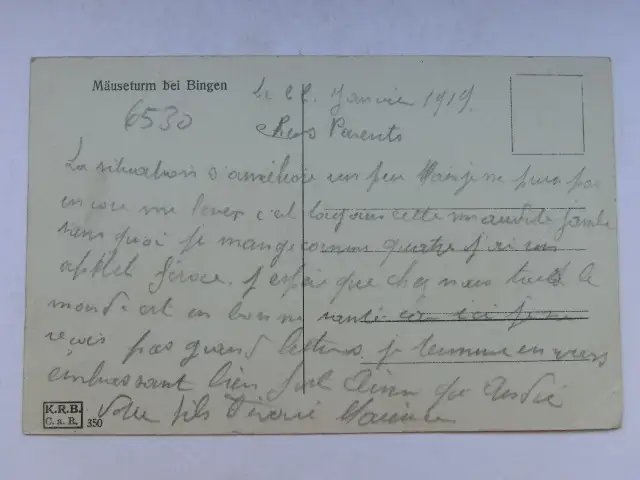 Mäuseturm bei Bingen
Le 22 Janvier 1919.
6530
Chers Parents
La situation s'améliore un peu Mais je ne puis pas
encore me lever c'est toujours cette maudite jambe
sans quoi je mange comme quatre j'ai un
appetit féroce. J'espère que chez nous tout le
monde est en bonne santé car ici je ne
reçois pas grand lettres. je termine en vous
embrassant bien fort Aimé que
Votre fils Maurice
K.R.B.
C. a. R. 350